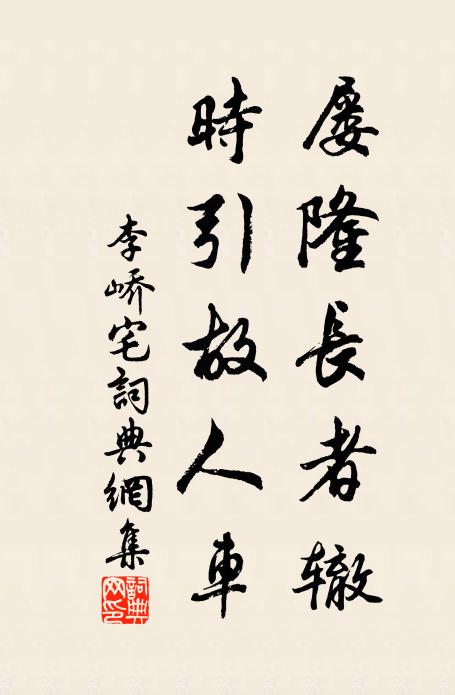 屡隆長者辙
時引故人車
李峤宅詞典網集
詞典网印